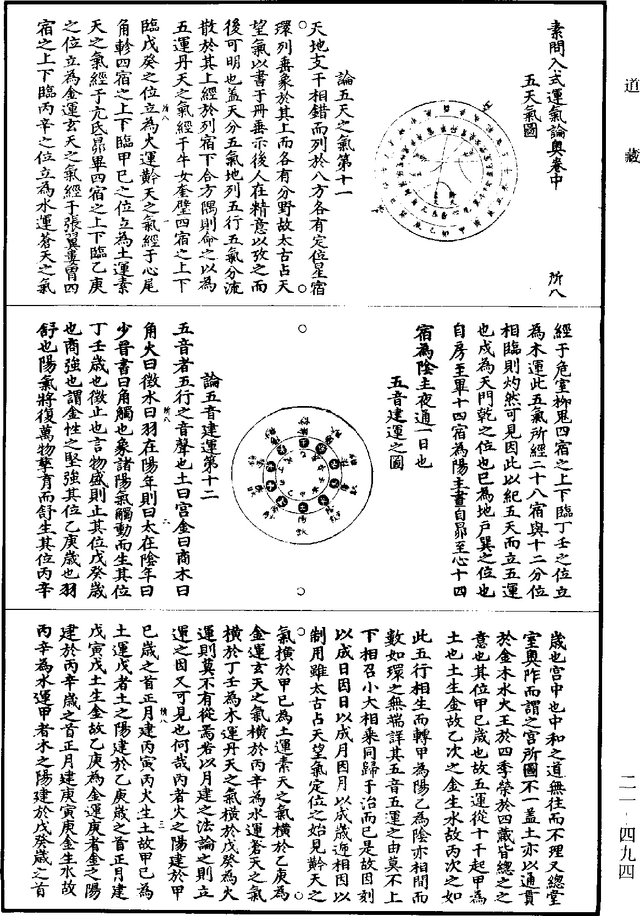 道藏
素問入式運氣論奧卷中 所八
五天氣圖
論五天之氣第十一
天地支干相錯而列於八方各有定位星宿
環列垂象於其上而各有分野故太古占天
望氣以書于冊垂示後人在精意以攷之而
後可明也盖天分五氣地列五行五氣分流
散於其上經於列宿下合方隅則命之以為
五運丹天之氣經于牛女奎壁四宿之上下
臨戊癸之位立為火運黅天之氣經于心尾
角軫四宿之上下臨甲己之位立為土運素
天之氣經于亢氐昴畢四宿之上下臨乙庚
之位立為金運玄天之氣經于張翼婁胃四
宿之上下臨丙辛之位立為水運蒼天之氣
經于危室柳鬼四宿之上下臨丁壬之位立
為木運此五氣所經二十八宿與十二分位
相臨則灼然可見因此以紀五天而立五運
也戌為天門乾之位也巳為地戶巽之位也
自房至畢十四宿為陽主晝自昴至心十四
宿為陰主夜通一日也
五音建運之圖
論五音建運第十二
五音者五行之音聲也土曰宮金曰商木曰
角火曰徵水曰羽在陽年則曰太在陰年曰
少晉書曰角觸也象諸陽氣觸動而生其位
丁壬歲也徵止也言物盛則止其位戊癸歲
也商強也謂金性之堅強其位乙庚歲也羽
舒也陽氣將復萬物孳育而舒生其位丙辛
歲也宮中也中和之道無往而不理又總堂
室奧阼而謂之宮所圖不一盖土亦以通貫
於金木水火王於四季榮於四藏皆總之之
意也其位甲己歲也故五運從十干起甲為
土也土生金故乙次之金生水故丙次之如
此五行相生而轉甲為陽乙為陰亦相間而
數如環之無端詳其五音五運之由莫不上
下相召小大相乘同歸于治而已是故因刻
以成日因日以成月因月以成歲遞相因以
制用雖太古占天望氣定位之始見黅天之
氣橫於甲己為土運素天之氣橫於乙庚為
金運玄天之氣橫於丙辛為水運蒼天之氣
橫於丁壬為木運丹天之氣橫於戊癸為火
運則莫不有從焉若以月建之法論之則立
運之因又可見也何哉丙者火之陽建於甲
己歲之首正月建丙寅丙火生土故甲己為
土運戊者土之陽建於乙庚歲之首正月建
戊寅戊土生金故乙庚為金運庚者金之陽
建於丙辛歲之首正月建庚寅庚金生水故
丙辛為水運甲者木之陽建於戊癸歲之首
二一 四九四